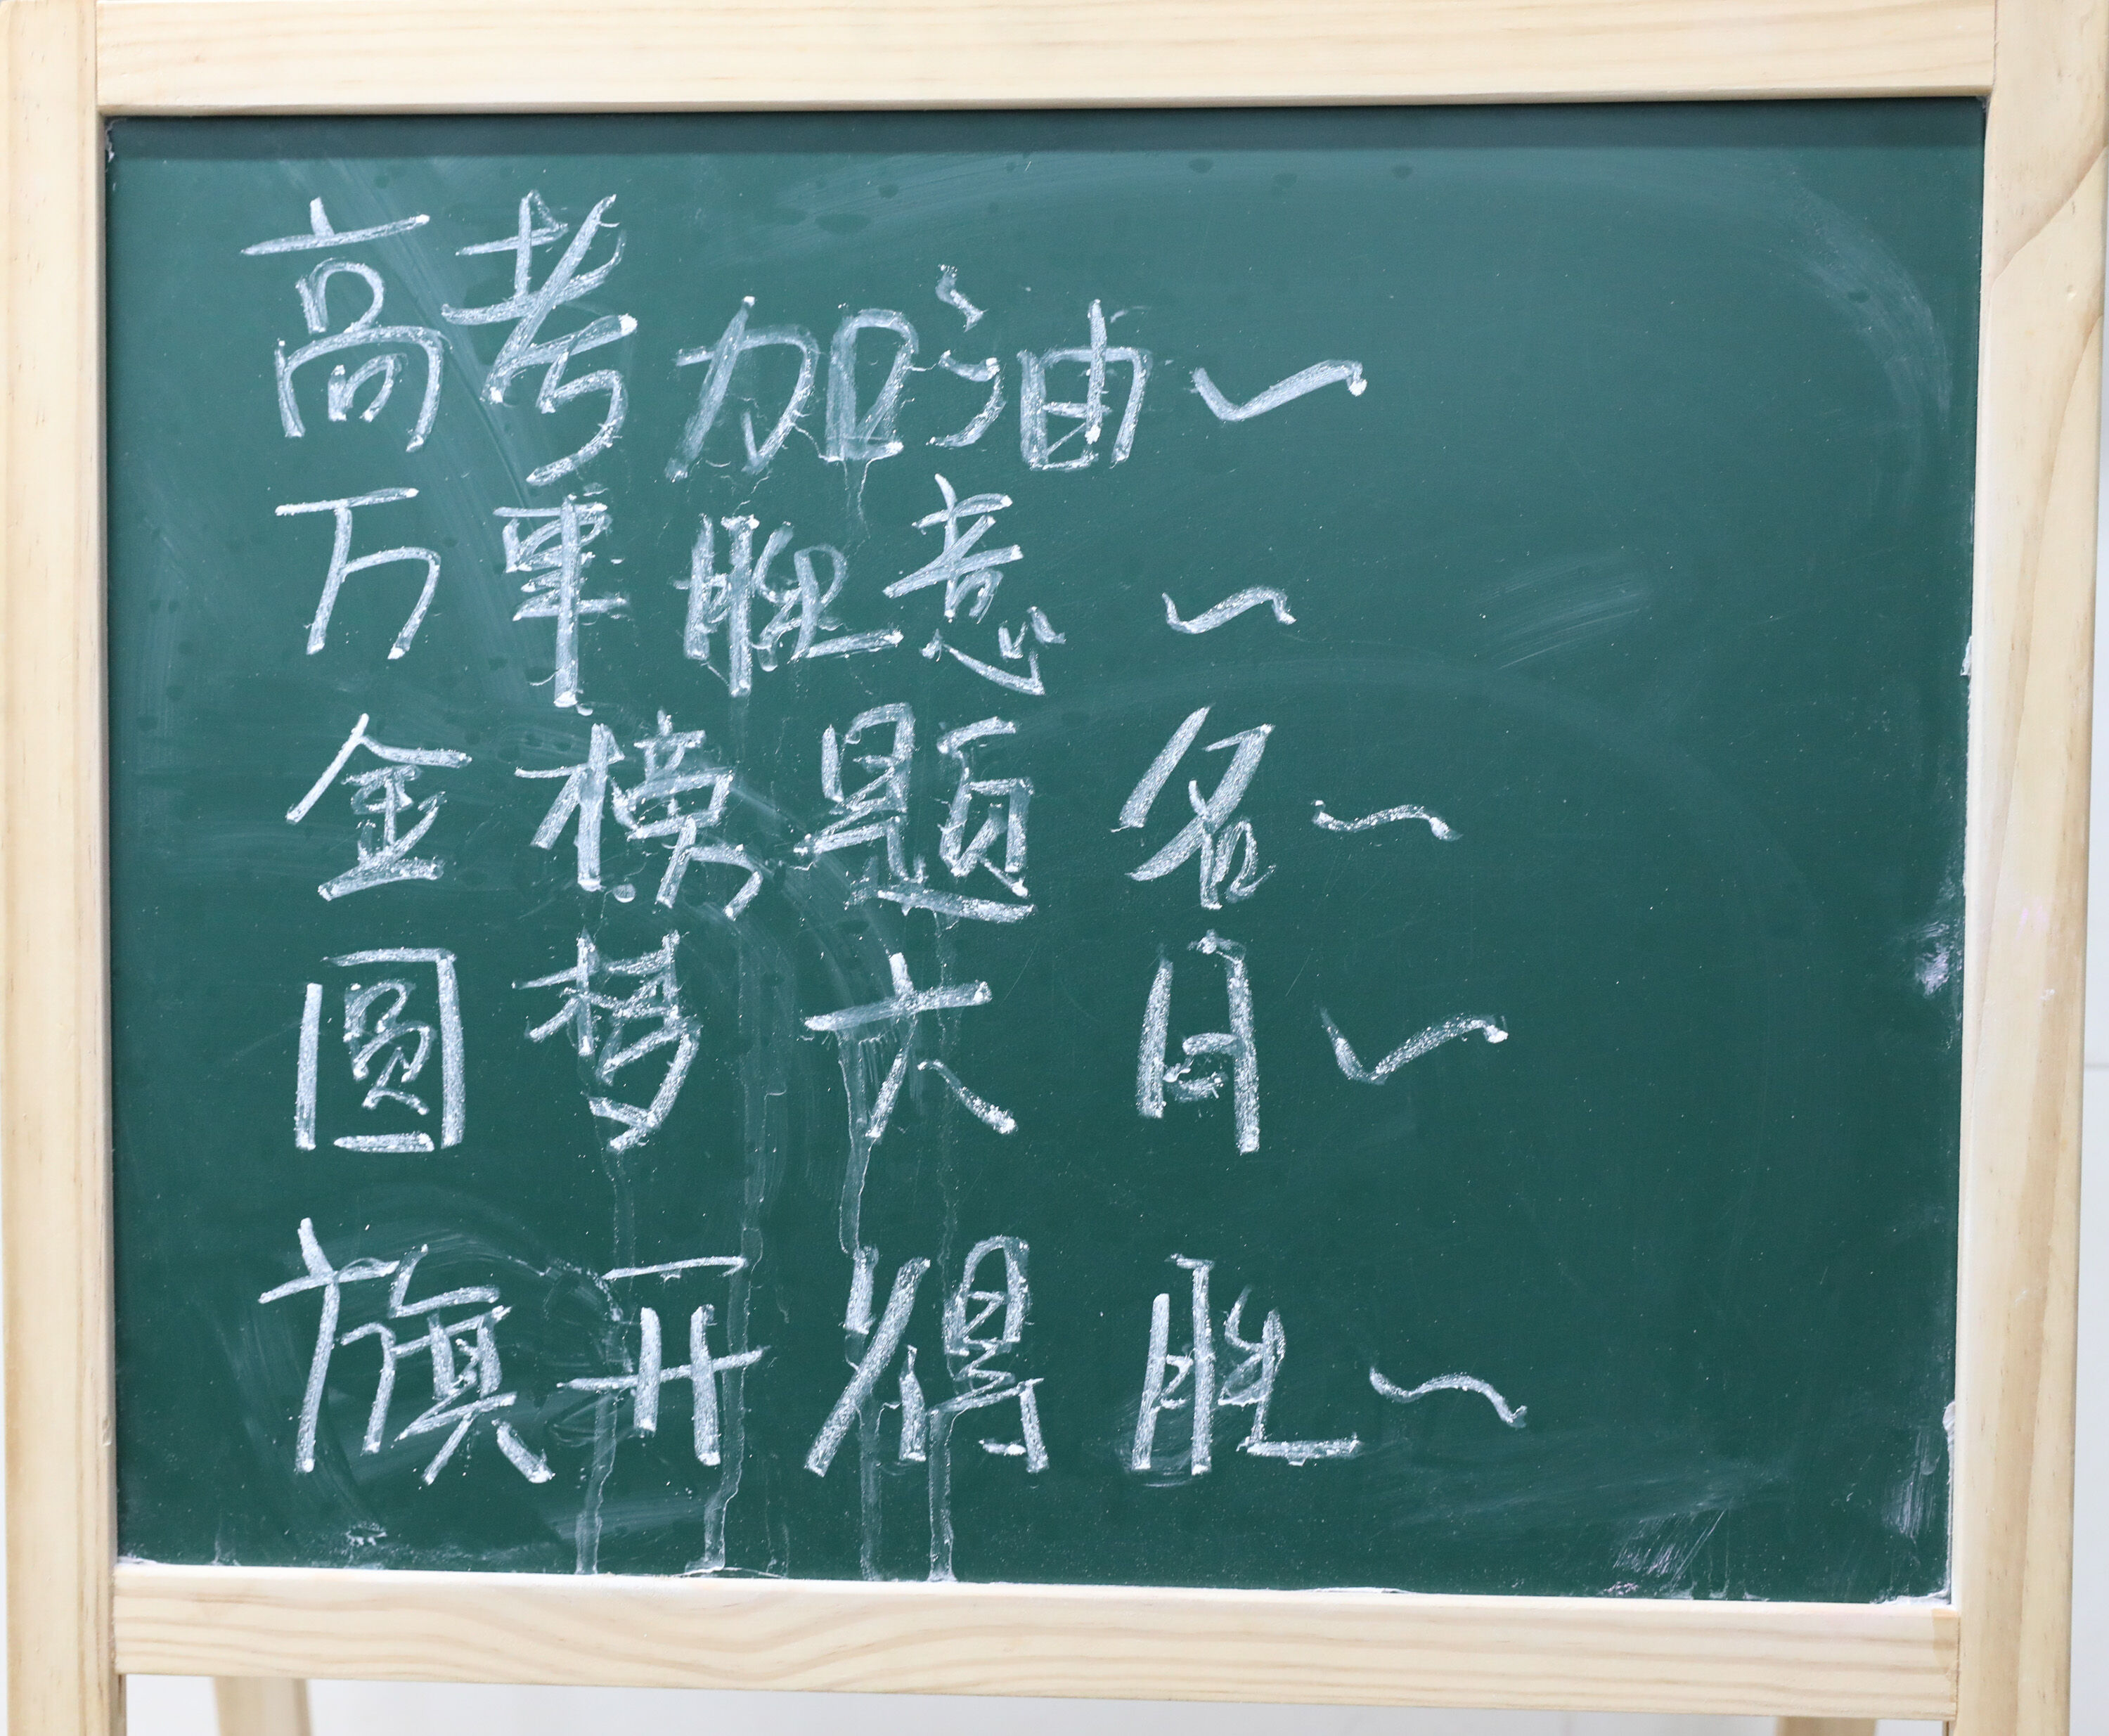 高考加油~
万事胜意~
金榜题名~
圆梦六月~
旗开得胜~